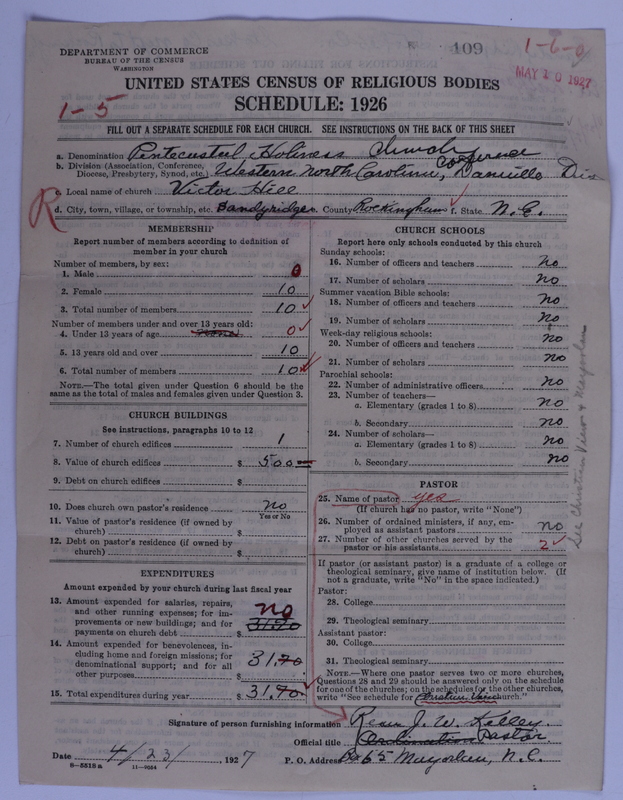 DEPARTMENT OF COMMERCE
BUREAU OF THE CENSUS
WASHINGTON
109
1-6-0
MAY 10 1927
UNITED STATES CENSUS OF RELIGIOUS BODIES
SCHEDULE: 1926
1-5
FILL OUT A SEPARATE SCHEDULE FOR EACH CHURCH. SEE INSTRUCTIONS ON THE BACK OF THIS SHEET
a. Denomination Pentecostal Holiness Church
b. Division (Association, Conference, Diocese, Presbytery, Synod, etc.) Western North Carolina, Conference Danville Dis
c. Local name of church Victor Hill
R
d. City, town, village, or township, etc. Sandyridge e. County Rockingham f. State N.C.
MEMBERSHIP
Report number of members according to definition of
member in your church
Number of members, by sex:
1. Male 0
2. Female 10
3. Total number of members 10
Number of members under and over 13 years old:
4. Under 13 years of age 0
5. 13 years old and over 10
6. Total number of members 10
NOTE.—The total given under Question 6 should be the
same as the total of males and females given under Question 3.
CHURCH BUILDINGS
See instructions, paragraphs 10 to 12
7. Number of church edifices 1
8. Value of church edifices $ 500
9. Debt on church edifices $
10. Does church own pastor's residence no
Yes or No
11. Value of pastor's residence (if owned by
church) $
12. Debt on pastor's residence (if owned by
church) $
EXPENDITURES
Amount expended by your church during last fiscal year
13. Amount expended for salaries, repairs,
and other running expenses; for im-
provements or new buildings; and for
payments on church debt $ no 31.70
14. Amount expended for benevolences, in-
cluding home and foreign missions; for
denominational support; and for all
other purposes $ 31.70
15. Total expenditures during year $ 31.70
CHURCH SCHOOLS
Report here only schools conducted by this church
Sunday schools:
16. Number of officers and teachers no
17. Number of scholars no
Summer vacation Bible schools:
18. Number of officers and teachers no
19. Number of scholars no
Week-day religious schools:
20. Number of officers and teachers no
21. Number of scholars no
Parochial schools:
22. Number of administrative officers no
23. Number of teachers—
a. Elementary (grades 1 to 8) no
b. Secondary no
24. Number of scholars—
a. Elementary (grades 1 to 8) no
b. Secondary no
PASTOR
25. Name of pastor yes
(If church has no pastor, write "None")
26. Number of ordained ministers, if any, em-
ployed as assistant pastors no
27. Number of other churches served by the
pastor or his assistants 2
If pastor (or assistant pastor) is a graduate of a college or
theological seminary, give name of institution below. (If
not a graduate, write "No" in the space indicated.)
Pastor:
28. College
29. Theological seminary
Assistant pastor:
30. College
31. Theological seminary
NOTE.—Where one pastor serves two or more churches,
Questions 28 and 29 should be answered only on the schedule
for one of the churches; on the schedules for the other churches,
write "See schedule for Christian View church."
See Christian View & Mayodan
Signature of person furnishing information J. W. Kelley
Official title Pastor
Date 4/23/ 1927
P. O. Address Bx 65 Mayodan, N.C.
8-5518a 11-9054